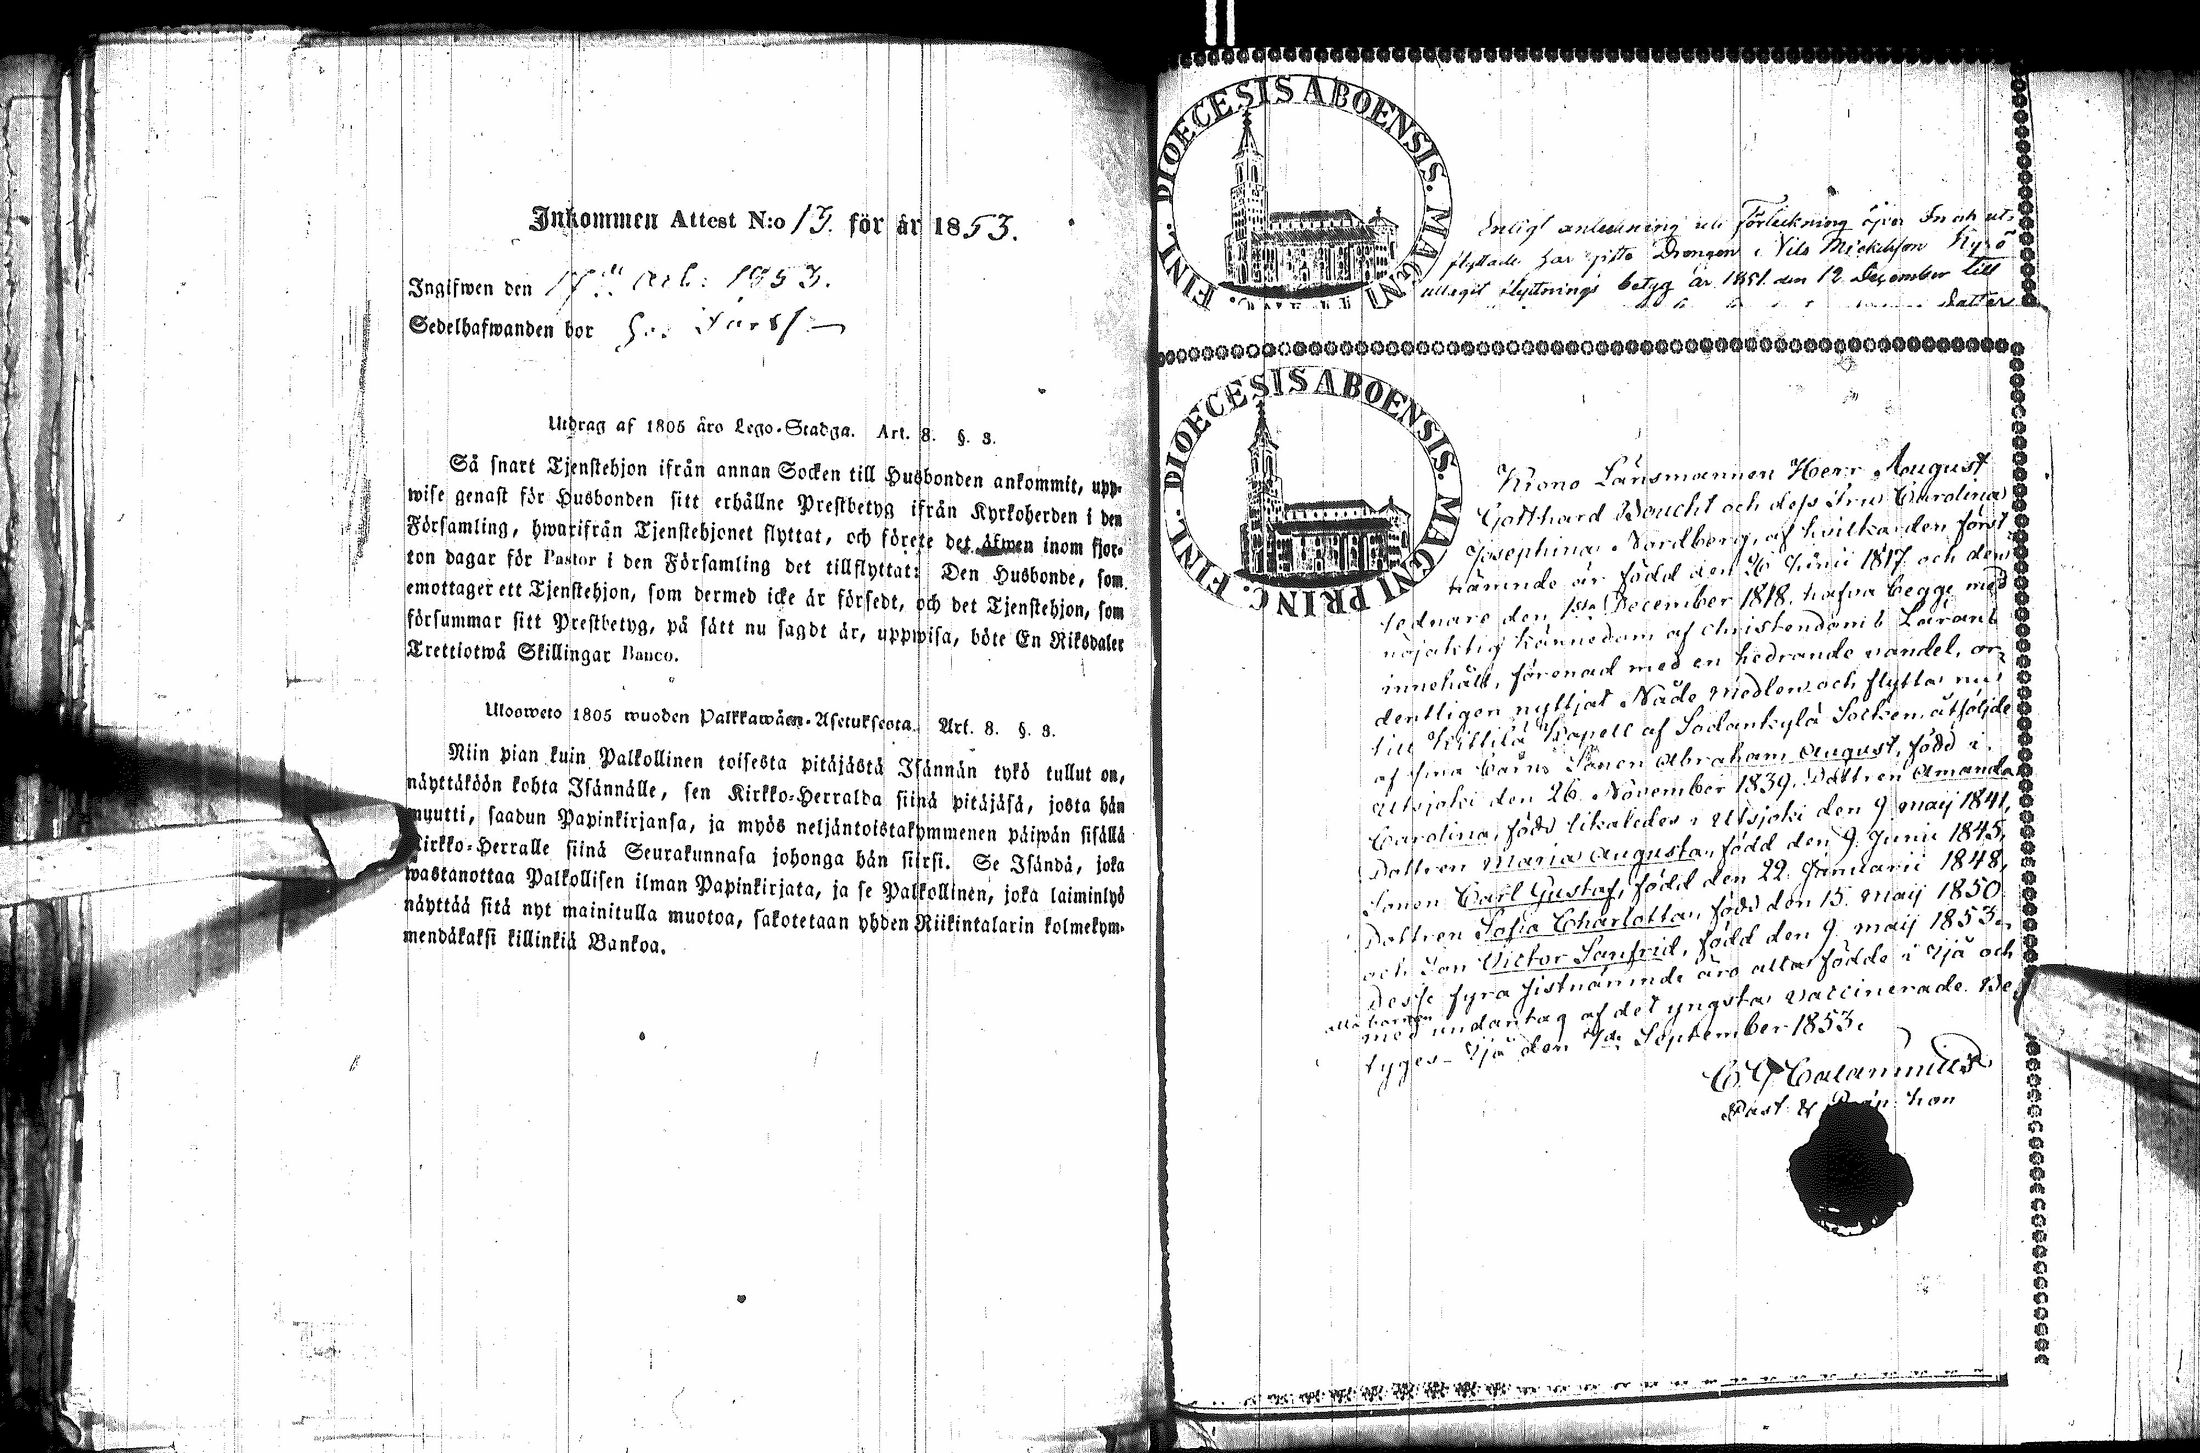 Inkommen Attest N:o 13. för år 1853.
Ingifwen den 1853.
Sedelhafwanden bor
Utdrag af 1805 åro Lego-Stadga. Art. 8. §. 3.
Så snart Tjenstehjon ifrån annan Socken till Husbonden ankommit, upp-
wise genast för Husbonden sitt erhållne Prestbetyg ifrån Kyrkoherden i den
Församling, hwarifrån Tjenstehjonet flyttat, och förete det äfwen inom fjor-
ton dagar för Pastor i den Församling det tillflyttat: Den Husbonde, som
emottager ett Tjenstehjon, som dermed icke är försedt, och det Tjenstehjon, som
försummar sitt Prestbetyg, på sätt nu sagdt är, uppwisa, böte En Riksdaler
Trettiotwå Skillingar Banco.
Uloosweto 1805 wuoden Palkkawäen-Asetuksesta. Art. 8. §. 3.
Niin pian kuin Palkollinen toisesta pitäjästä Isännän tykö tullut on,
näyttäköön kohta Isännälle, sen Kirkko-Herralda siinä pitäjäsä, josta hän
muutti, saadun Papinkirjansa, ja myös neljäntoistakymmenen päiwän sisällä
Kirkko-Herralle siinä Seurakunnasa johonga hän siirsi. Se Isändä, joka
wastanottaa Palkollisen ilman Papinkirjata, ja se Palkollinen, joka laiminlyö
näyttää sitä nyt mainitulla muotoa, sakotetaan yhden Riikintalarin kolmekym-
mendäkaksi killinkiä Bankoa.
DIOECESIS ABOENSIS. MAGNI FINL.
Enligt anledning uti Förteckning öfver In och ut-
flyttade har pito Drengen Nils Mickelsson Kyrö
uttagit flyttnings betyg år 1851 den 12 December till
Datter
DIOECESIS ABOENSIS. MAGNI PRINC. FINL.
Krono Länsmannen Herr August
Gotthard Woucht och dess Fru Carolina
Josephina Nordberg, af hvilka den först
nämnde är född den 26 Junii 1817 och den
sednare den 1sta December 1818. hafva begge med
nöjaktig kännedom af christendomens Lärans
innehåll, förenad med en hedrande vandel, or-
dentligen nyttjat Nåde medlen och flytta nu
till Kittilä Kapell af Sodankylä Socken, åtföljde
af sina barn: Sonen Abraham August, född i
Utsjoki den 26. November 1839. Dottren Amanda
Carolina, född likaledes i Utsjoki den 9 maij 1841,
Dottren Maria Augusta, född den 9. Junii 1845,
Sonen Carl Gustaf, född den 22. Januarii 1848,
Dottren Sofia Charlotta, född den 15. maij 1850
och Son Victor Sanfrid, född den 9 maij 1853.
Desse fyra sistnämnde äro alla födde i Ijå och
alla barnen
med undantag af det yngsta vaccinerade. Be-
tyges. Ijå den 7de September 1853.
C G Calamnius
Past. & hon